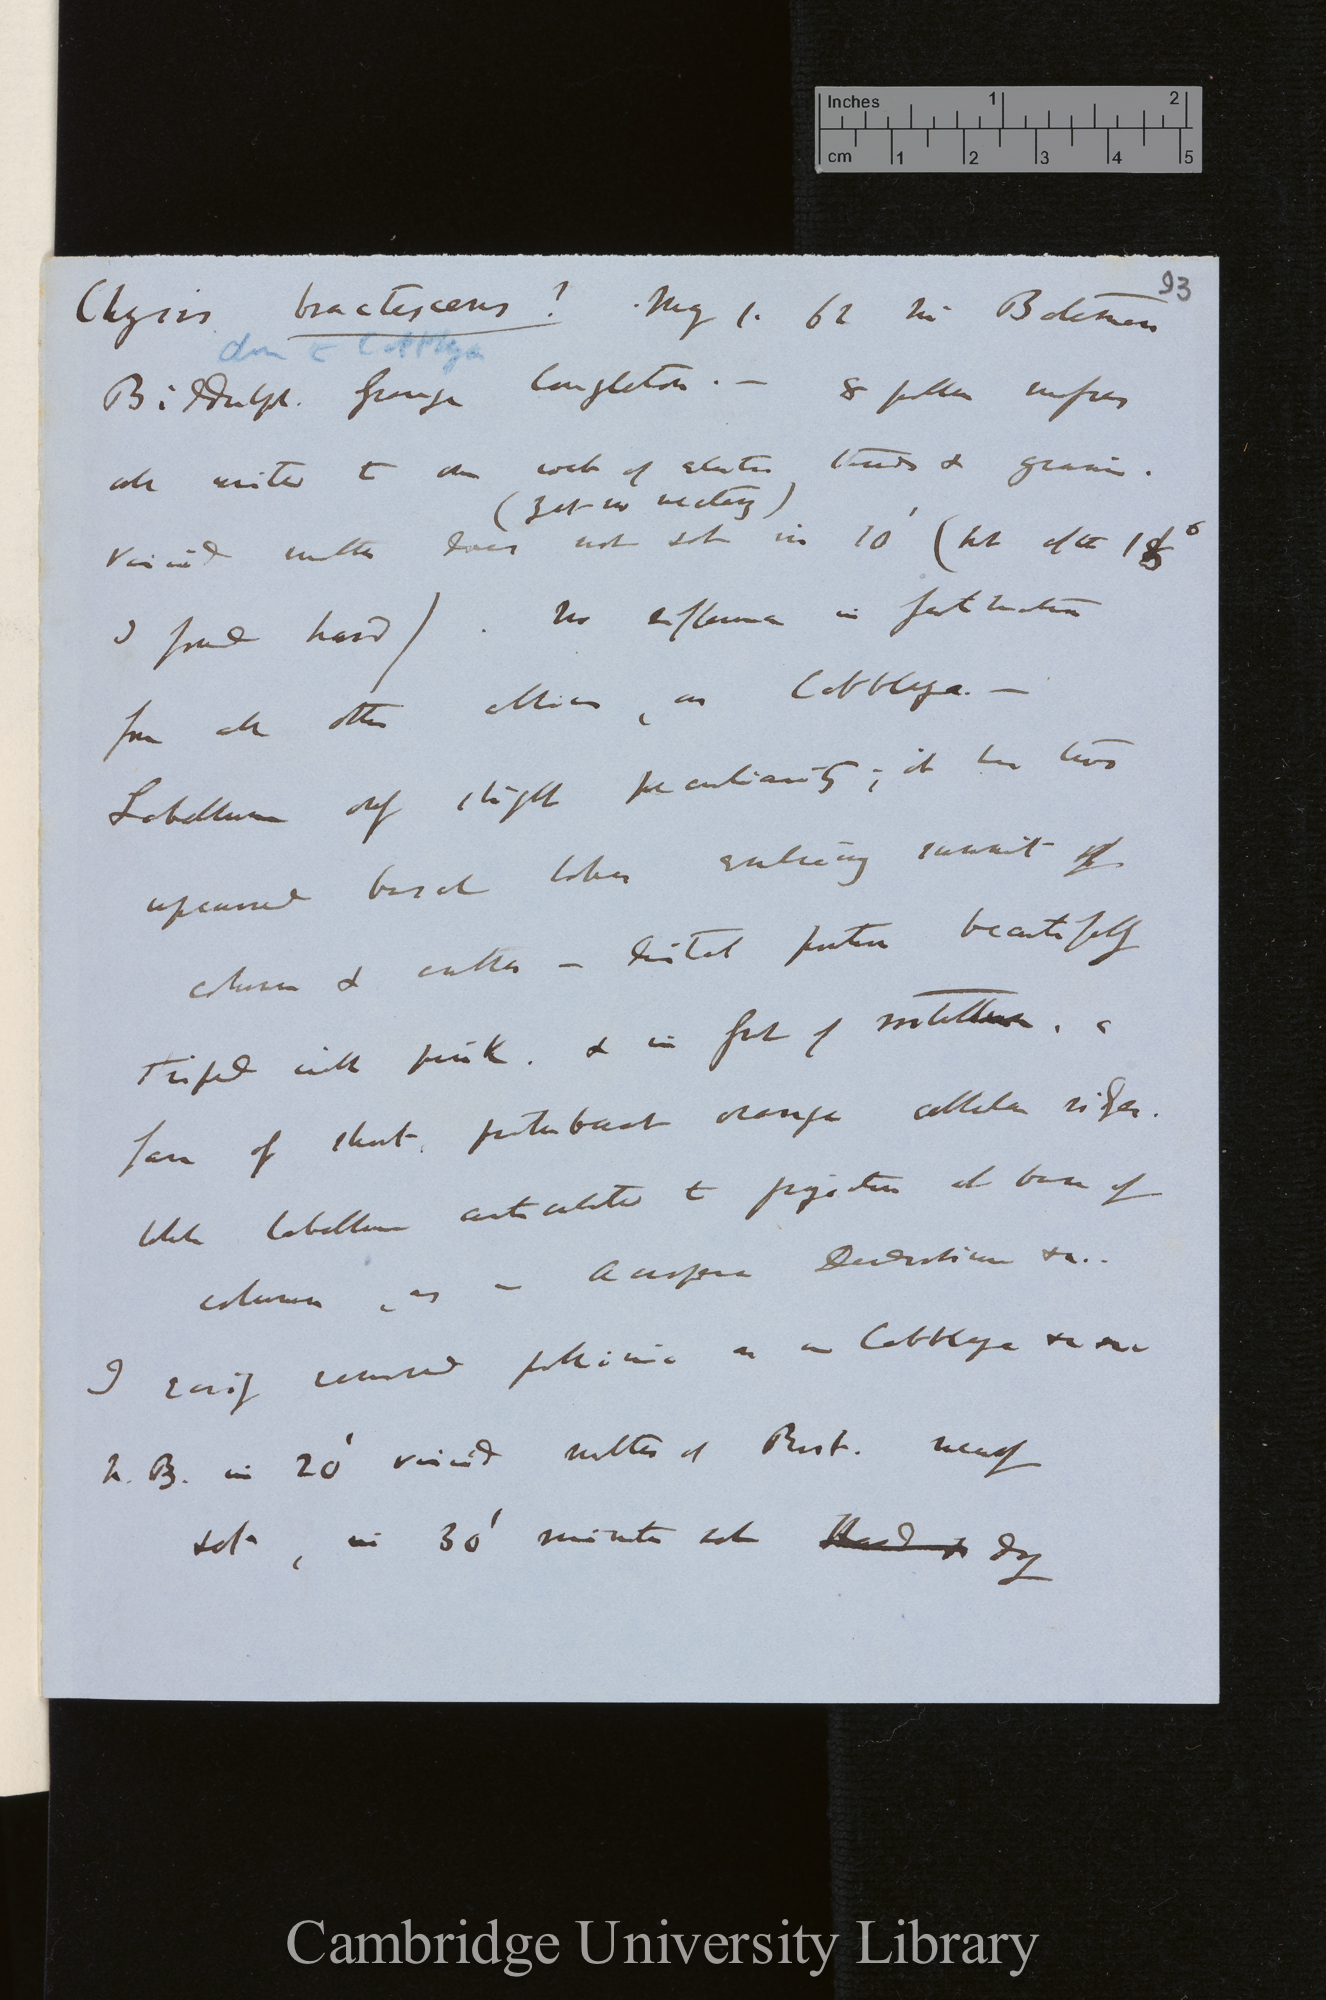 93
Chysis bractescens? May 1. 62 Mr Bateman
close to Cattleya
Biddulph. Grange Congleton. — 8 pollen masses
all united to one rock of elastic threads & grains.
(yet no nectary)
Viscid matter does not set in 10' (but after 1
I found hard). No difference in
from all other allies, as Cattleya. —
Labellum only slight peculiarity; it has two
upcurved basal lobes enclosing summit of
column & anther — distal portion beautifully
striped with pink. & in front of rostellum, a
fan of short. protuberant orange cellular ridges.
Whole labellum articulated to projection at base of
column, as in Acropera Dendrobium &c..
I easily removed pollinia as in Cattleya &c &c
N. B. in 20' viscid matter of Rost. nearly
set, in 30' minutes set Hard & dry
Inches 1 2
cm 1 2 3 4 5
Cambridge University Library